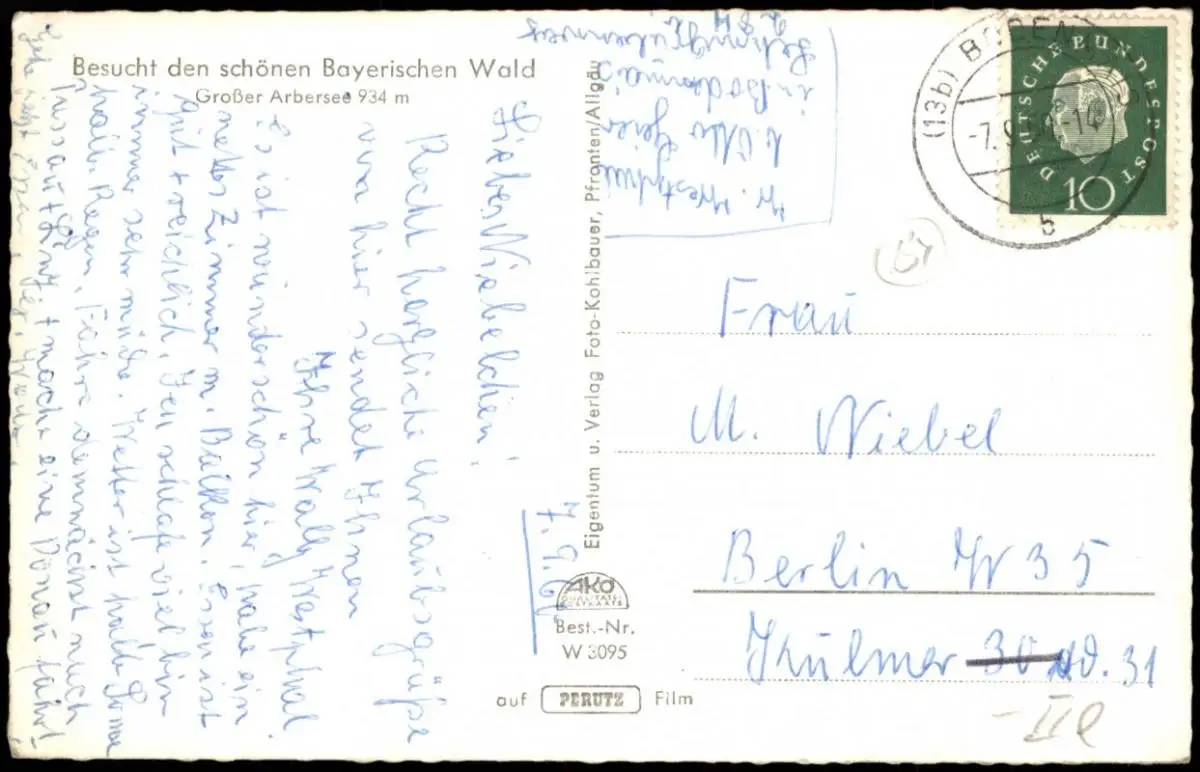 Besucht den schönen Bayerischen Wald
Großer Arbersee 934 m
7.9.60
Liebes Wiebelchen!
Recht herzliche Urlaubsgrüße
von hier sendet Ihnen
Ihre Wally Westphal
Es ist wunderschön hier, habe ein
nettes Zimmer m. Balkon. Essen ist
gut + reichlich. Ich schlafe viel bin
immer sehr müde. Wetter ist halb Sonne
halb Regen. Fahre demnächst nach
Passau + Linz + mache eine Donaufahrt
W. Westphal
b. Otto Geier
in Bodenmais
Eigentum u. Verlag Foto-Kohlbauer, Pfronten/Allgäu
AKO
QUALITÄTS-
POSTKARTE
Best.-Nr.
W 3095
auf PERUTZ Film
(13b) BODENMAIS
b
DEUTSCHE BUNDESPOST
10
Frau
M. Wiebel
Berlin W 35
Kulmer 31